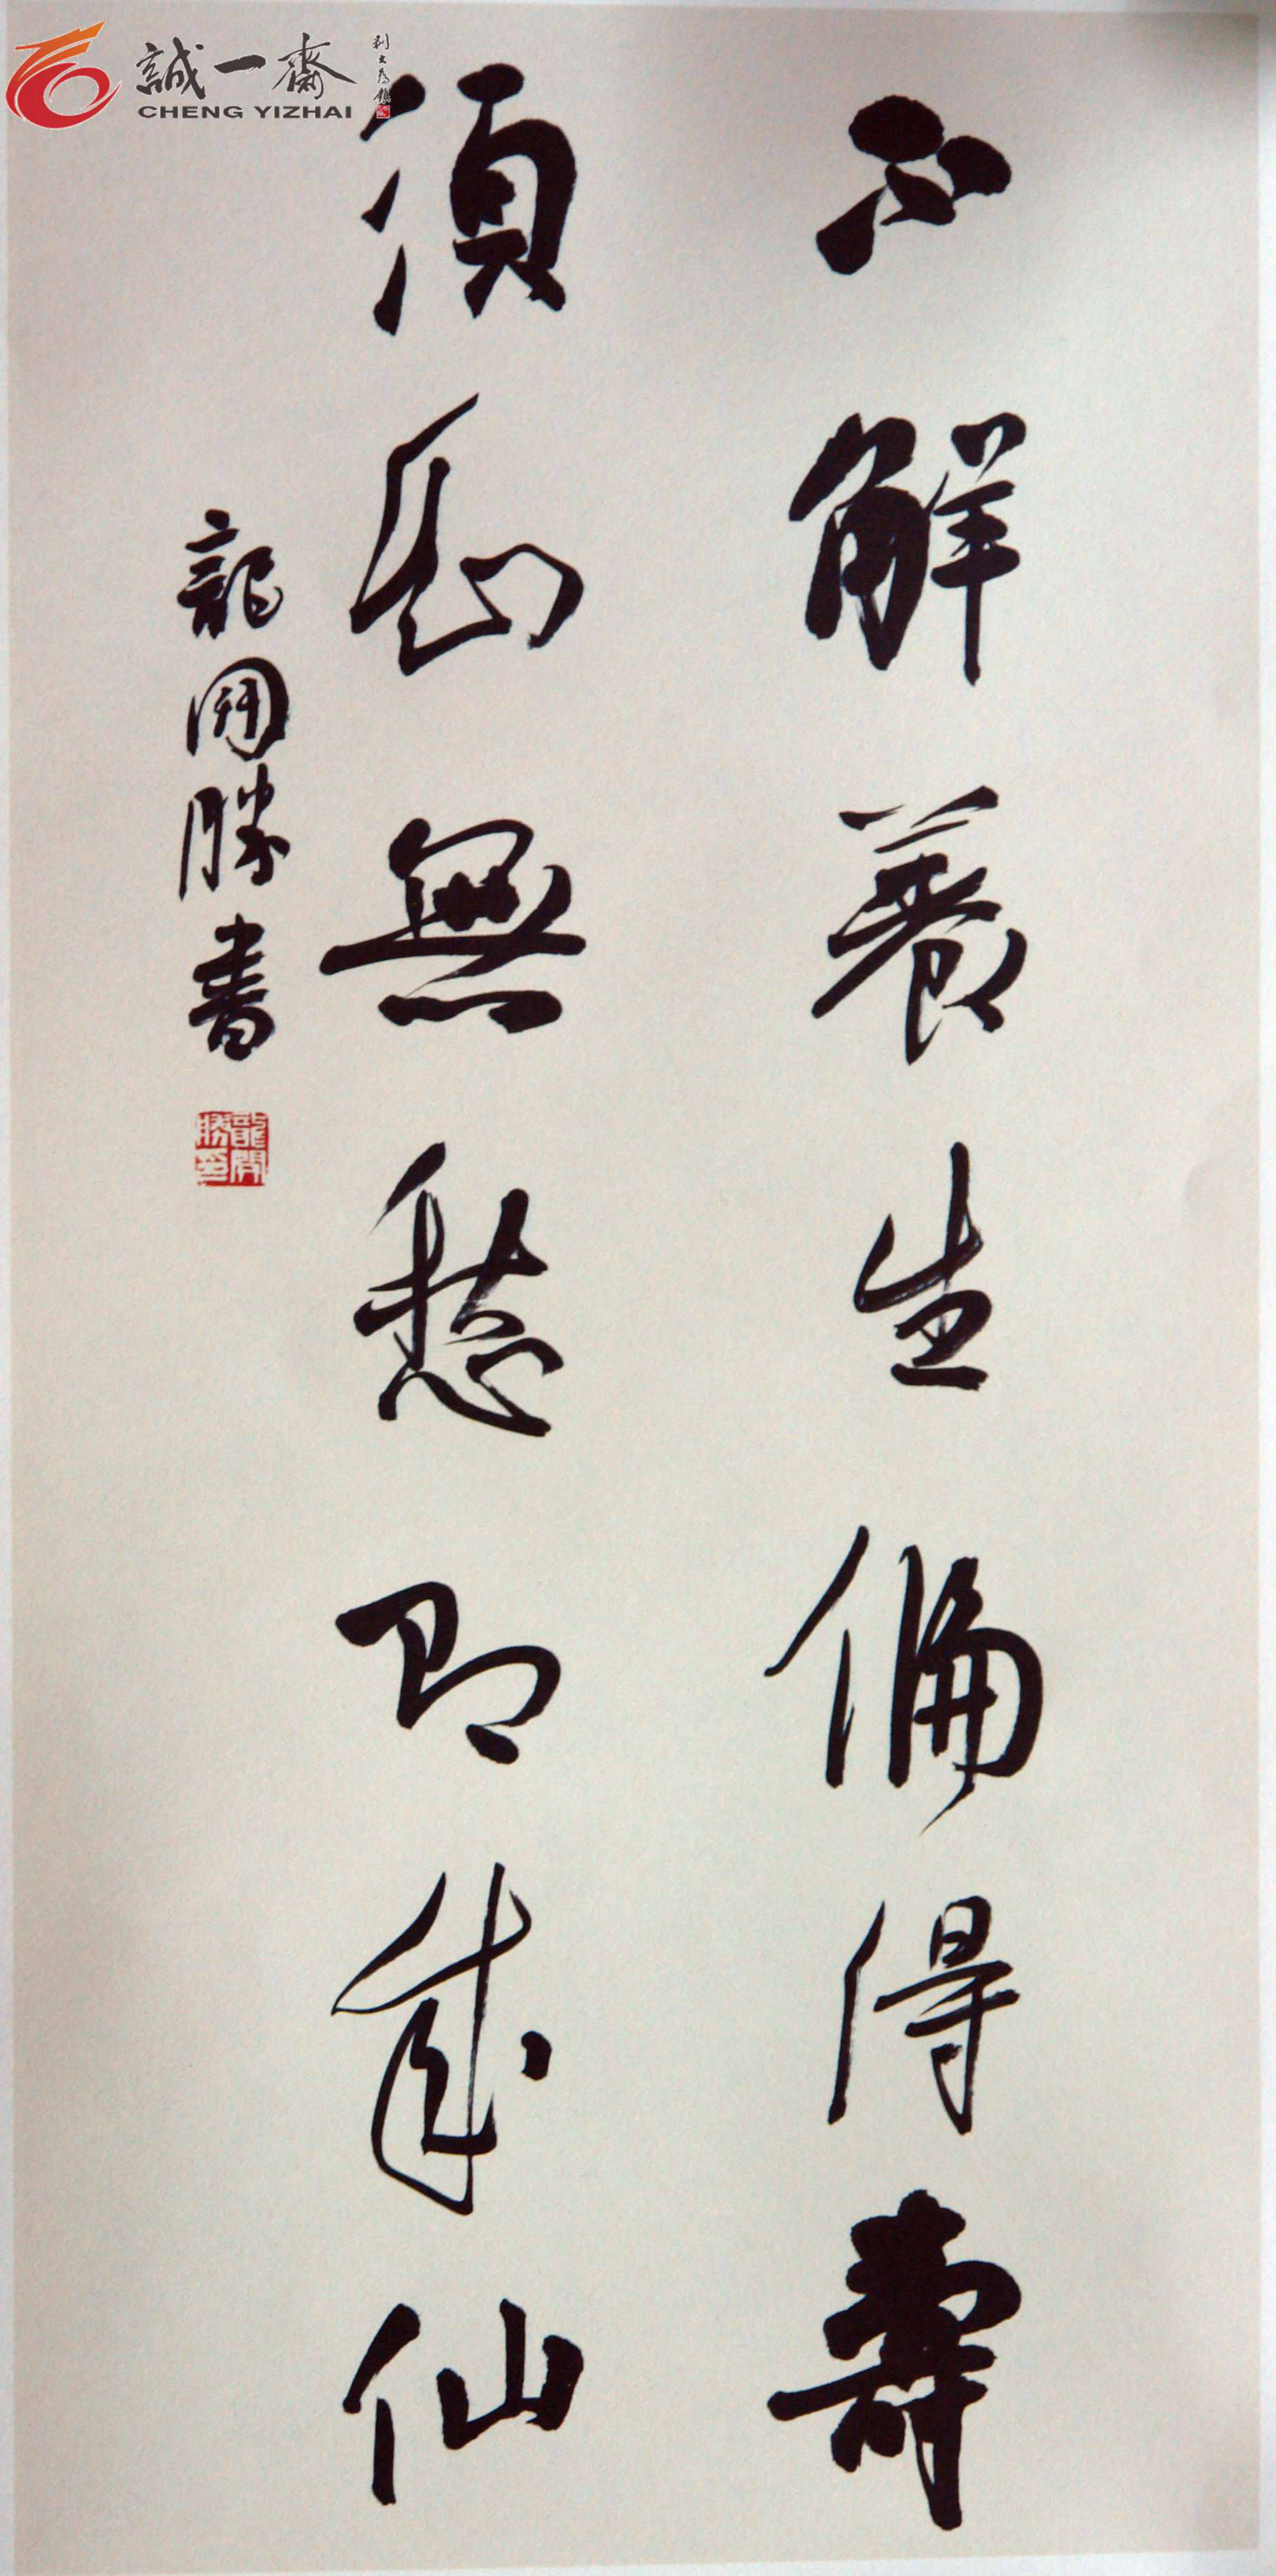 不解養生偏得壽
須知無愁即成仙
龍開勝書
龍開勝印
誠一齋
CHENG YIZHAI